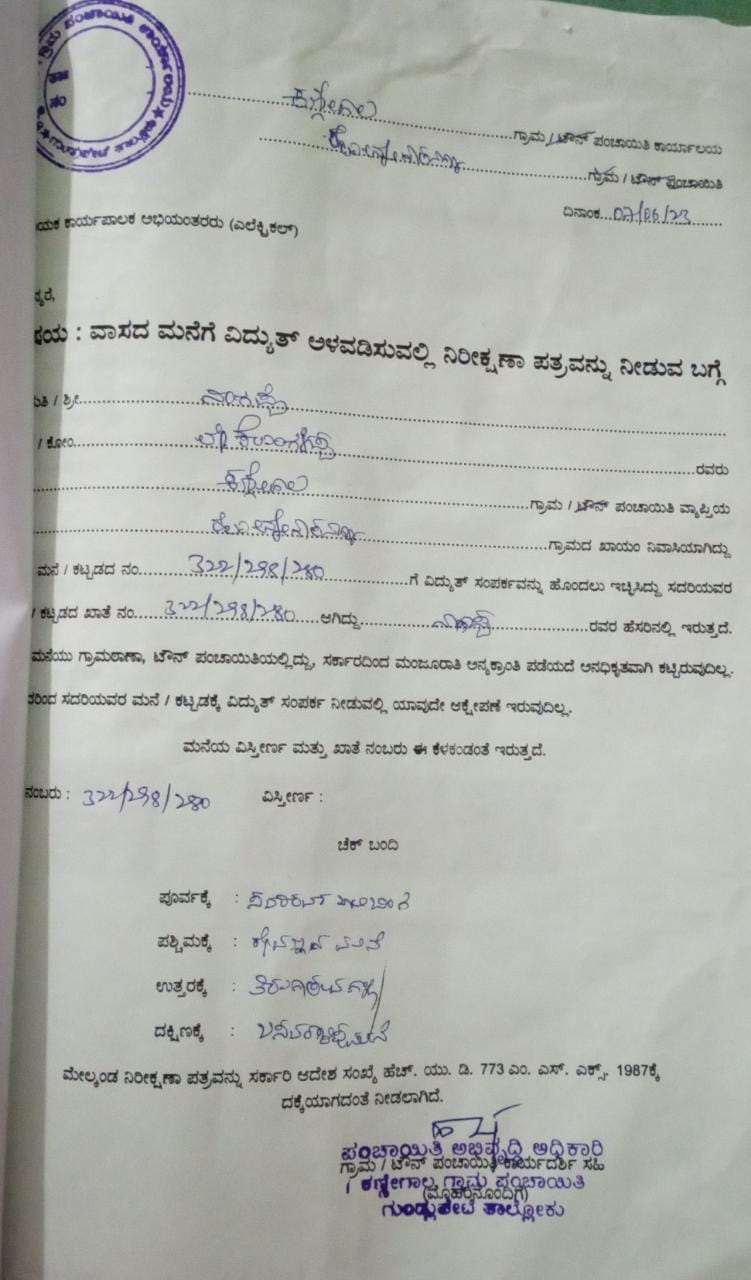 ಗ್ರಾಮ ಪಂಚಾಯಿತಿ ಕಾರ್ಯಾಲಯ
ಕಣ್ಣೇಗಾಲ ಗ್ರಾಮ / ಟೌನ್ ಪಂಚಾಯಿತಿ ಕಾರ್ಯಾಲಯ
ಗ್ರಾಮ / ಟೌನ್ ಪಂಚಾಯಿತಿ
ದಿನಾಂಕ...07/06/23
ಯಕ ಕಾರ್ಯಪಾಲಕ ಅಭಿಯಂತರರು (ಎಲೆಕ್ಟ್ರಿಕಲ್)
ನ್ಯರೆ,
ಷಯ : ವಾಸದ ಮನೆಗೆ ವಿದ್ಯುತ್ ಅಳವಡಿಸುವಲ್ಲಿ ನಿರೀಕ್ಷಣಾ ಪತ್ರವನ್ನು ನೀಡುವ ಬಗ್ಗೆ
ಮತಿ / ಶ್ರೀ
/ ಕೋಂ ರವರು
ಕಣ್ಣೇಗಾಲ ಗ್ರಾಮ / ಟೌನ್ ಪಂಚಾಯಿತಿ ವ್ಯಾಪ್ತಿಯ
ಗ್ರಾಮದ ಖಾಯಂ ನಿವಾಸಿಯಾಗಿದ್ದು
ಮನೆ / ಕಟ್ಟಡದ ನಂ. 322/298/280 ಗೆ ವಿದ್ಯುತ್ ಸಂಪರ್ಕವನ್ನು ಹೊಂದಲು ಇಚ್ಛಿಸಿದ್ದು ಸದರಿಯವರ
/ ಕಟ್ಟಡದ ಖಾತೆ ನಂ. 322/298/280 ಆಗಿದ್ದು ರವರ ಹೆಸರಿನಲ್ಲಿ ಇರುತ್ತದೆ.
ಮನೆಯು ಗ್ರಾಮಠಾಣಾ, ಟೌನ್ ಪಂಚಾಯಿತಿಯಲ್ಲಿದ್ದು, ಸರ್ಕಾರದಿಂದ ಮಂಜೂರಾತಿ ಅನ್ಯಕ್ರಾಂತಿ ಪಡೆಯದೆ ಅನಧಿಕೃತವಾಗಿ ಕಟ್ಟಿರುವುದಿಲ್ಲ.
ದರಿಂದ ಸದರಿಯವರ ಮನೆ / ಕಟ್ಟಡಕ್ಕೆ ವಿದ್ಯುತ್ ಸಂಪರ್ಕ ನೀಡುವಲ್ಲಿ ಯಾವುದೇ ಆಕ್ಷೇಪಣೆ ಇರುವುದಿಲ್ಲ.
ಮನೆಯ ವಿಸ್ತೀರ್ಣ ಮತ್ತು ಖಾತೆ ನಂಬರು ಈ ಕೆಳಕಂಡಂತೆ ಇರುತ್ತದೆ.
ನಂಬರು : 322/298/280 ವಿಸ್ತೀರ್ಣ :
ಚೆಕ್ ಬಂದಿ
ಪೂರ್ವಕ್ಕೆ :
ಪಶ್ಚಿಮಕ್ಕೆ : ಮನೆ
ಉತ್ತರಕ್ಕೆ :
ದಕ್ಷಿಣಕ್ಕೆ :
ಮೇಲ್ಕಂಡ ನಿರೀಕ್ಷಣಾ ಪತ್ರವನ್ನು ಸರ್ಕಾರಿ ಆದೇಶ ಸಂಖ್ಯೆ ಹೆಚ್. ಯು. ಡಿ. 773 ಎಂ. ಎಸ್. ಎಕ್ಸ್. 1987ಕ್ಕೆ
ದಕ್ಕೆಯಾಗದಂತೆ ನೀಡಲಾಗಿದೆ.
ಪಂಚಾಯಿತಿ ಅಭಿವೃದ್ಧಿ ಅಧಿಕಾರಿ
ಗ್ರಾಮ / ಟೌನ್ ಪಂಚಾಯಿತಿ ಕಾರ್ಯದರ್ಶಿ ಸಹಿ
ಕಣ್ಣೇಗಾಲ ಗ್ರಾಮ ಪಂಚಾಯಿತಿ
(ಮೊಹರಿನೊಂದಿಗೆ)
ಗುಂಡ್ಲುಪೇಟೆ ತಾಲ್ಲೋಕು